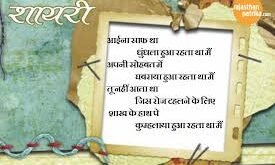 शायरी
rajasthan
patrika.com
आईना साफ था
धुंधला हुआ रहता था मैं
अपनी सोहबत में
घबराया हुआ रहता था मैं
तू नहीं आता था
जिस रोज टहलने के लिए
शाख के हाथ पे
कुम्हलाया हुआ रहता था मैं